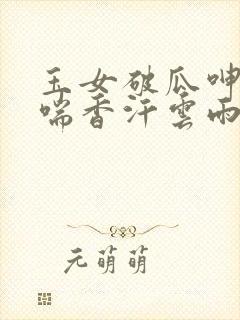 玉女破瓜呻
喘香汗雲雨
元萌萌